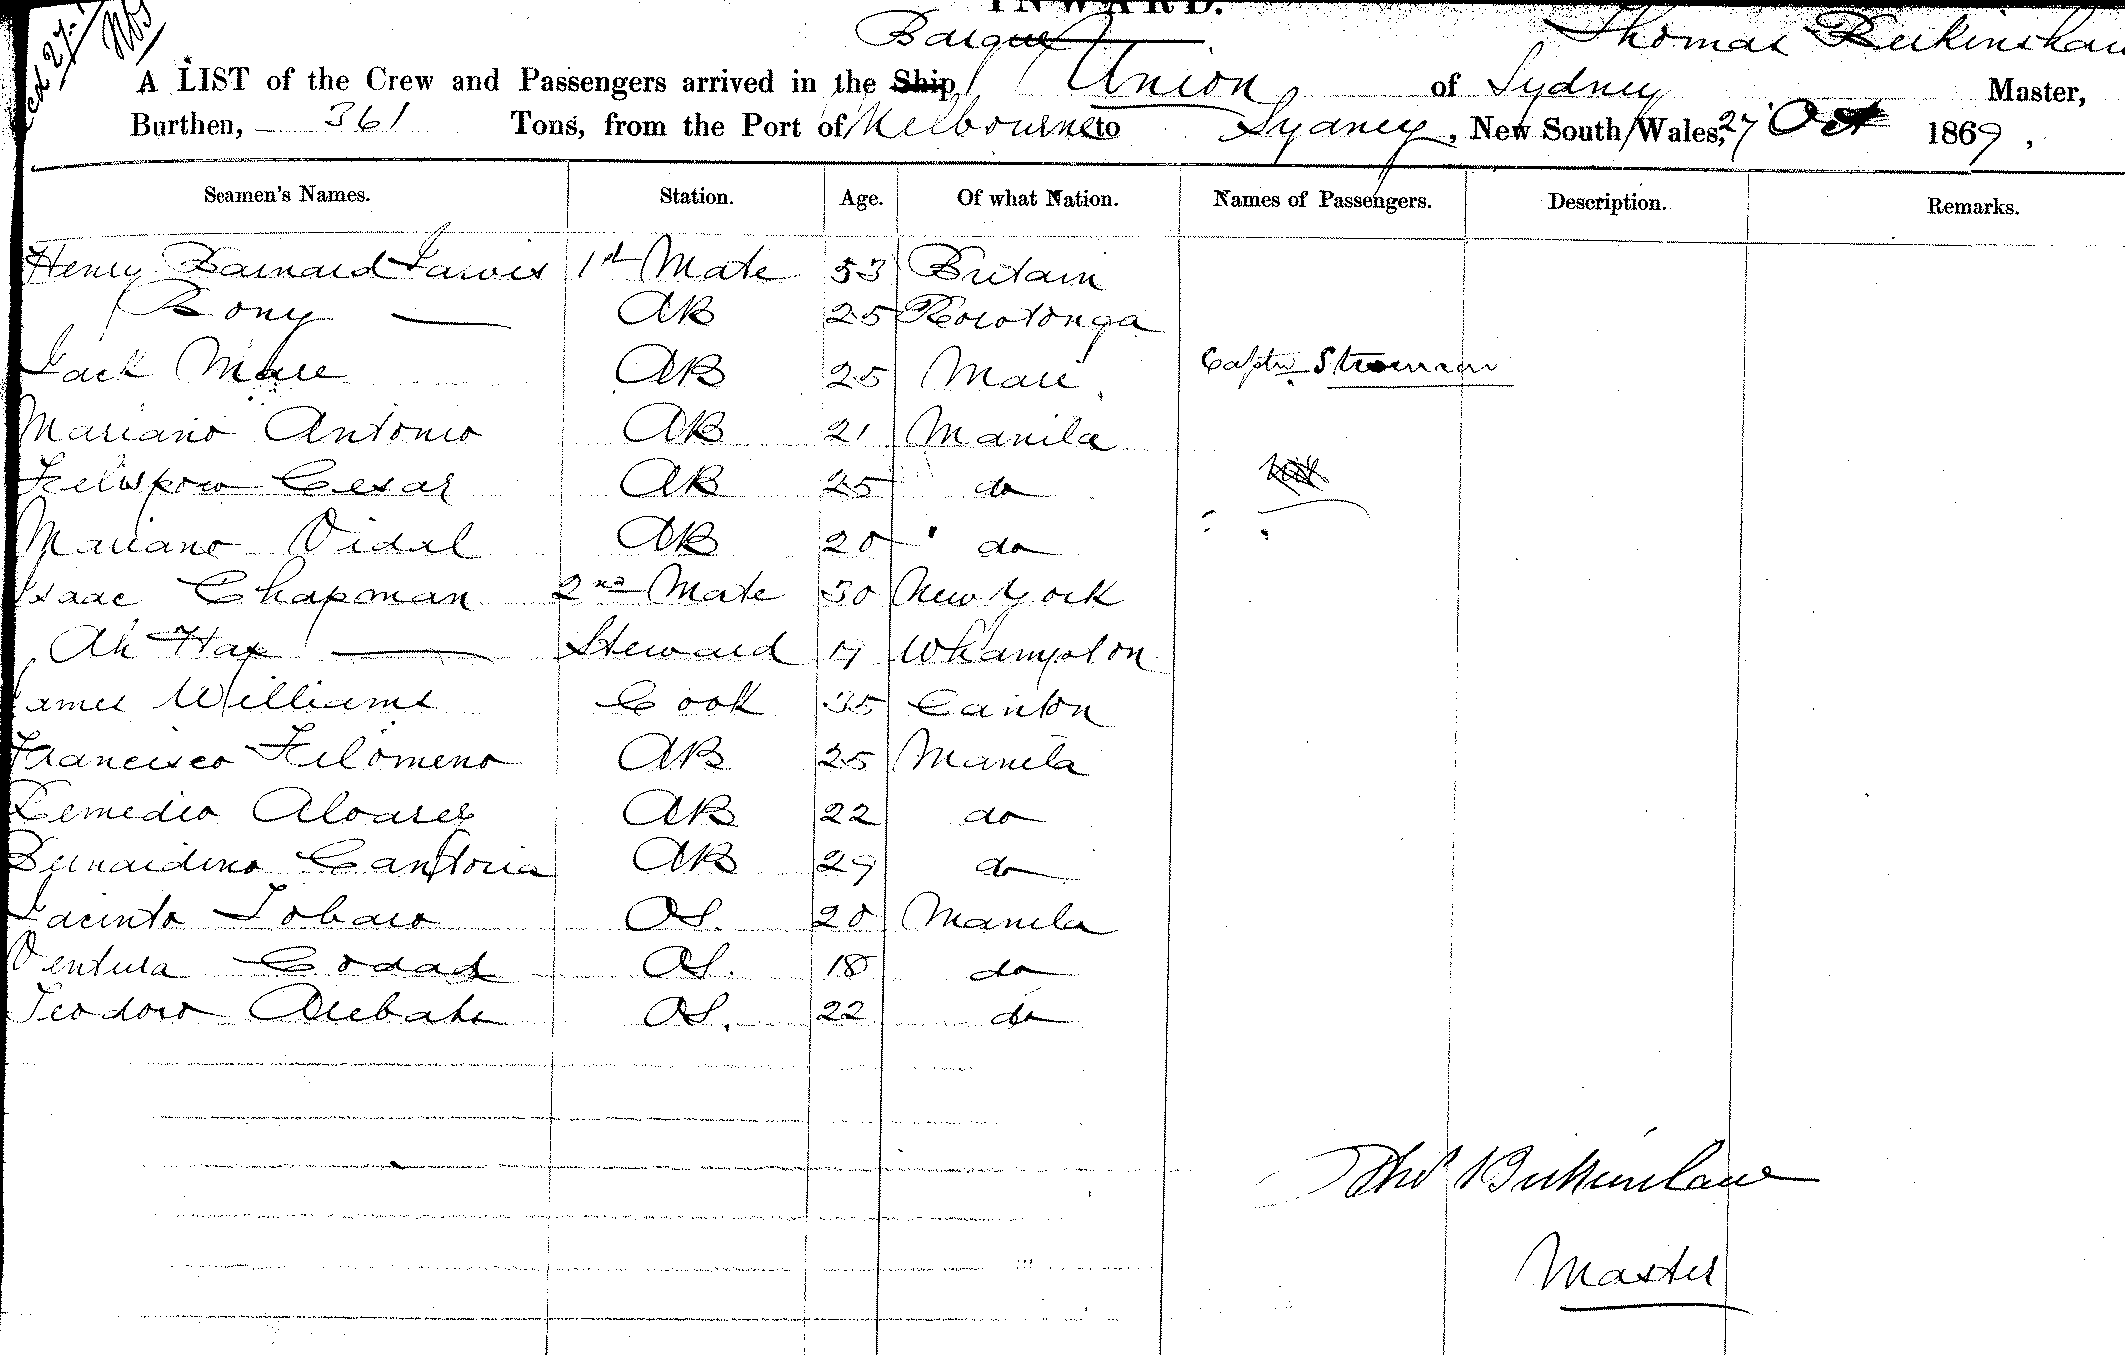 INWARD.
Barque Thomas Birkinshaw
A LIST of the Crew and Passengers arrived in the Ship Union of Sydney Master,
Burthen, 361 Tons, from the Port of Melbourne to Sydney, New South Wales, 27 Oct 1869.
Seamen's Names. Station. Age. Of what Nation. Names of Passengers. Description. Remarks.
Henry Barnard Jarvis 1st Mate 53 Britain
Bony — AB 25 Rorotonga
Jack Mare AB 25 Mare Captn
Mariano Antonio AB 21 Manila
Cesar AB 25 do
Mariano Vidal AB 20 do
Isaac Chapman 2nd Mate 30 New York
Ah Hap — Steward 17 Whampton
James Williams Cook 35 Canton
Francisco Filomeno AB 25 Manila
Remedio Alvarez AB 22 do
Bernardino Cantoria AB 29 do
Jacinto Tobaro OS. 20 Manila
Ventura Codad OS. 18 do
Teodoro OS. 22 do
Thos Birkinshaw
Master